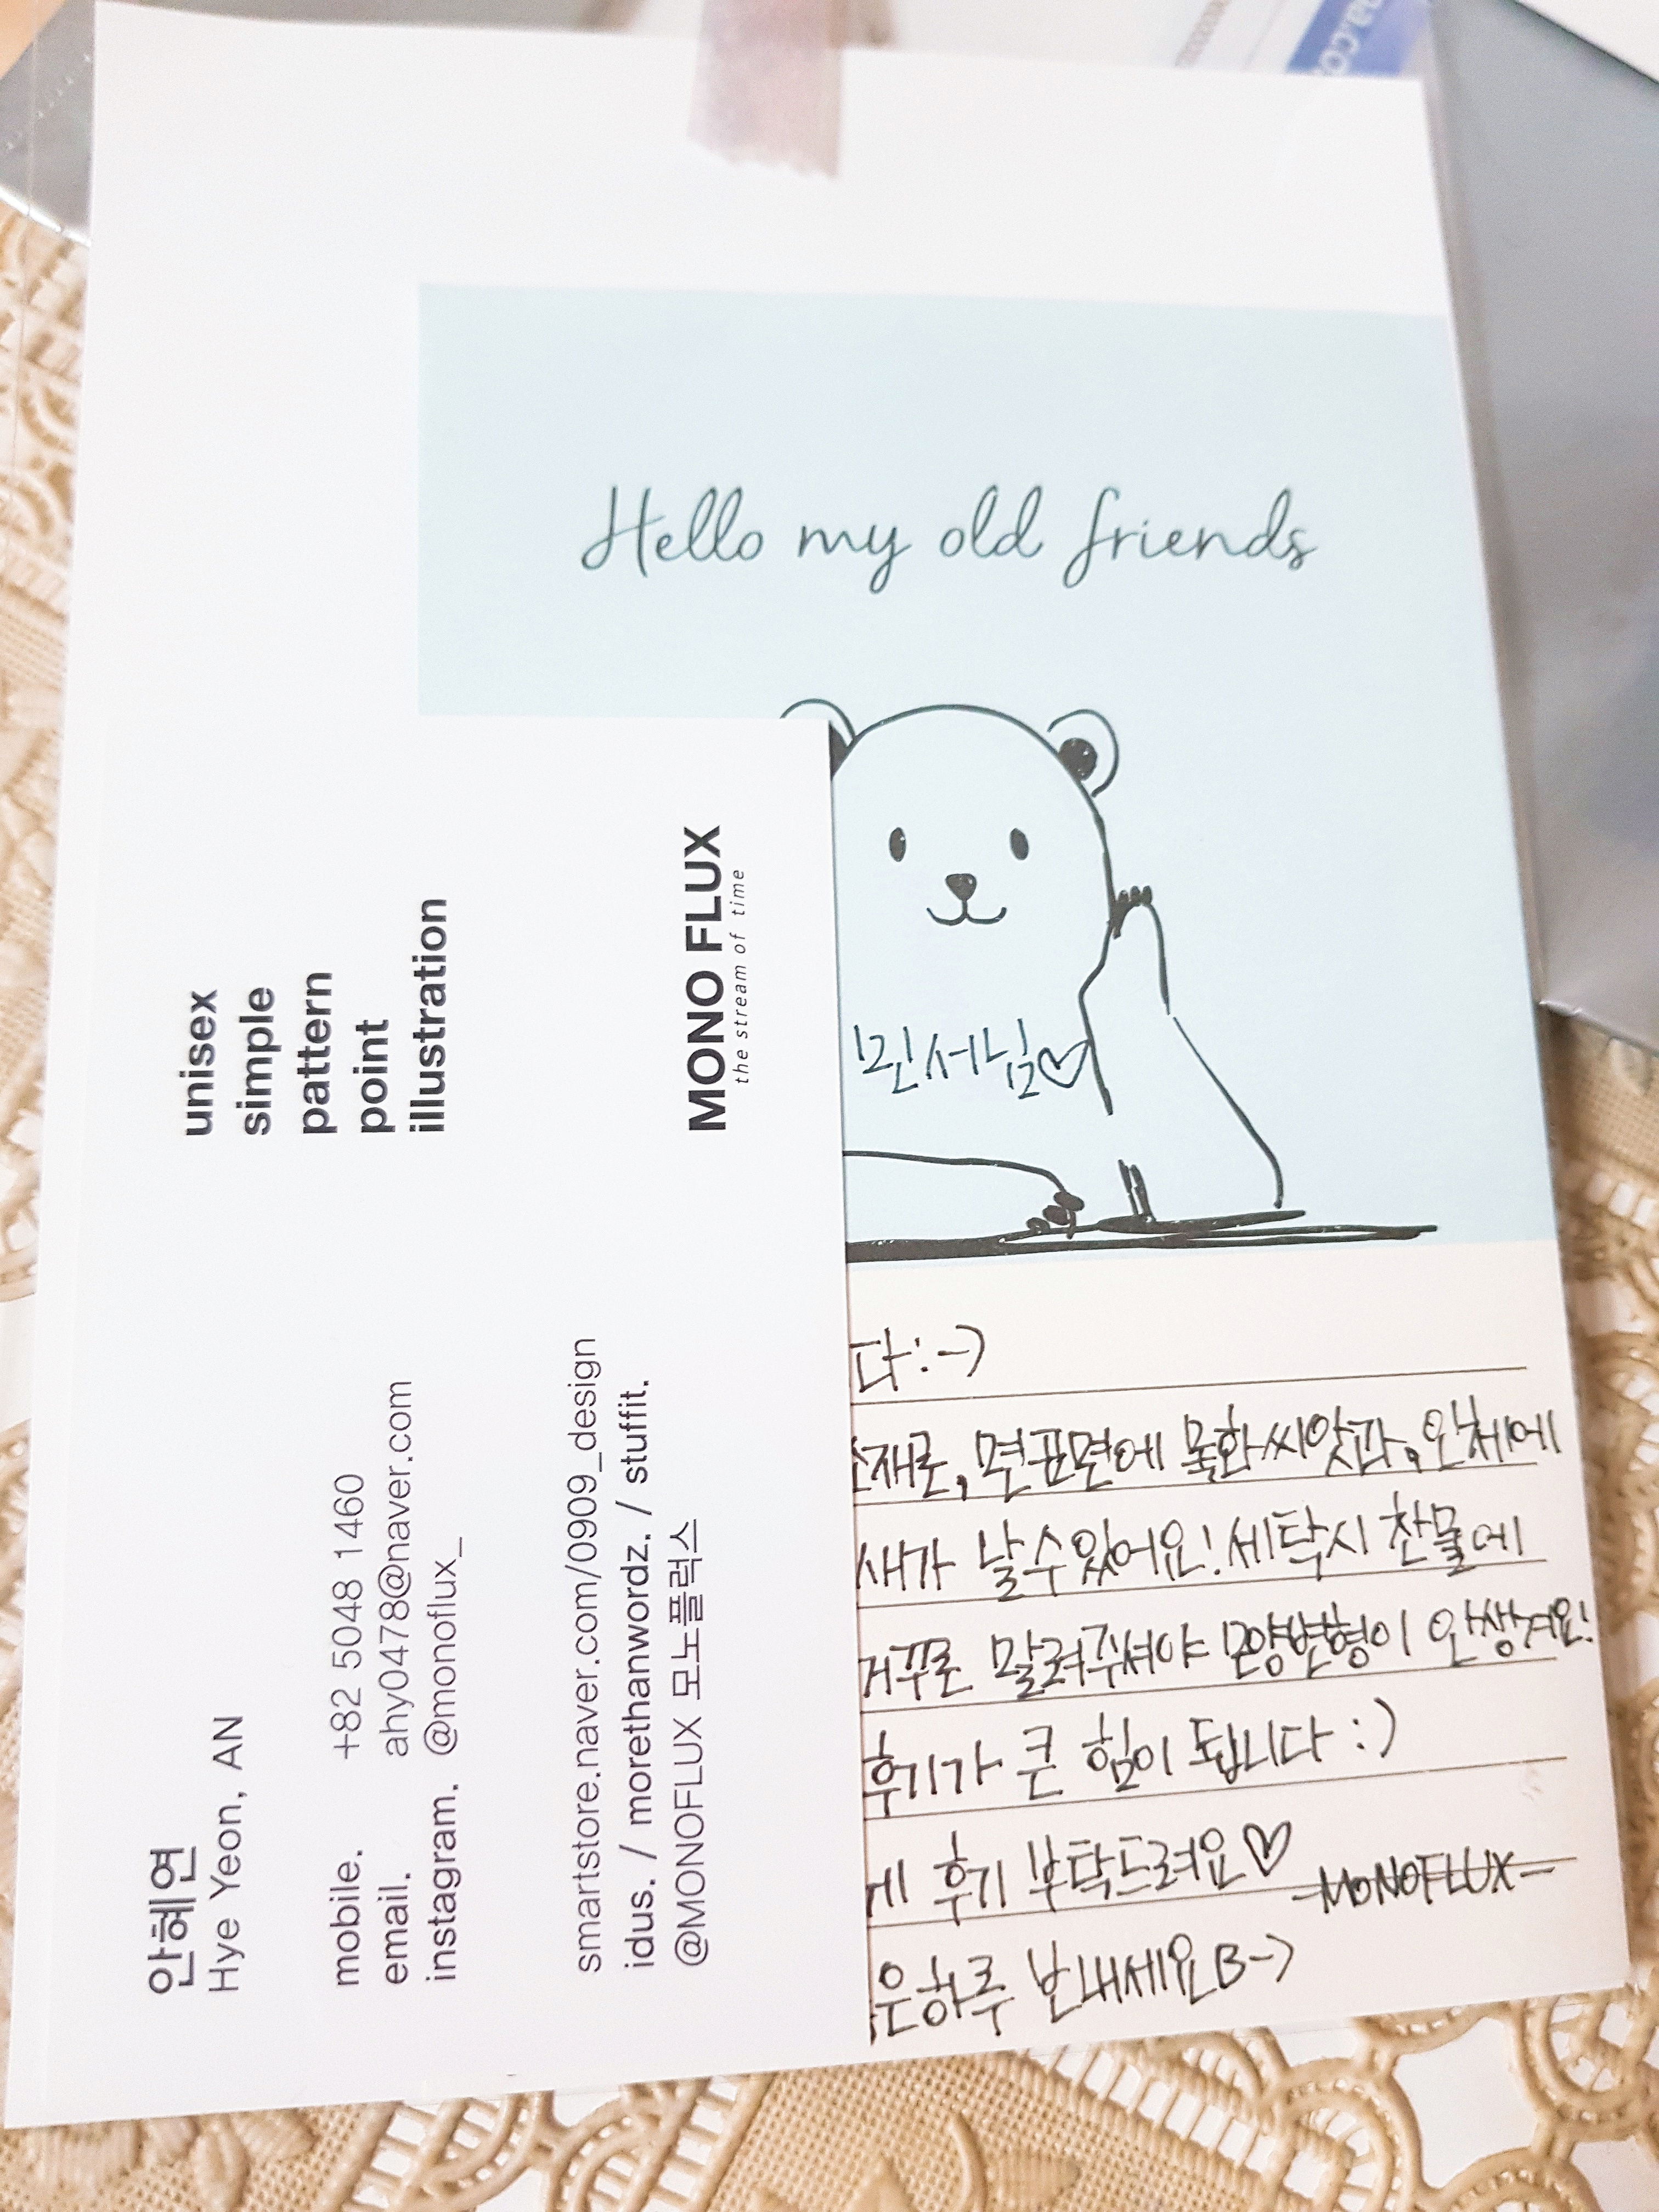 Hello my old friends
민서님♡
다:-)
소재로, 면표면에 목화씨앗과, 안쳬에
새가 날수있어요! 세탁시 찬물에
거꾸로 말려주셔야 모양변형이 안생겨요!
후기가 큰 힘이 됩니다 :)
게 후기 부탁드려요♡
-MONOFLUX-
은하루 보내세요B-)
unisex
simple
pattern
point
illustration
MONO FLUX
the stream of time
안혜연
Hye Yeon, AN
mobile. +82 5048 1460
email. ahy0478@naver.com
instagram. @monoflux_
smartstore.naver.com/0909_design
idus. / morethanwordz. / stuffit.
@MONOFLUX 모노플럭스